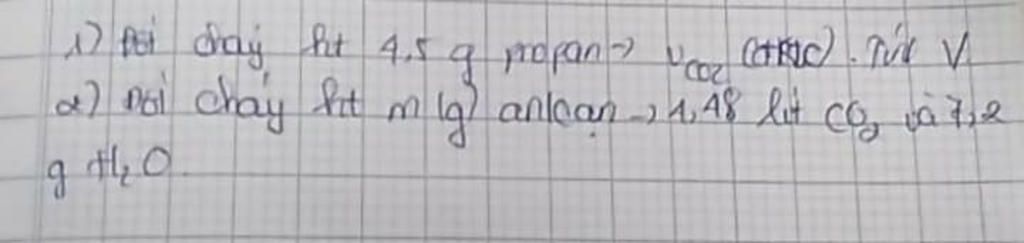 1) Đốt cháy hết 4,5 g propan → VCO2 (đktc). Tính V
2) Đốt cháy hết m (g) ankan → 4,48 lít CO2 và 7,2
g H2O.